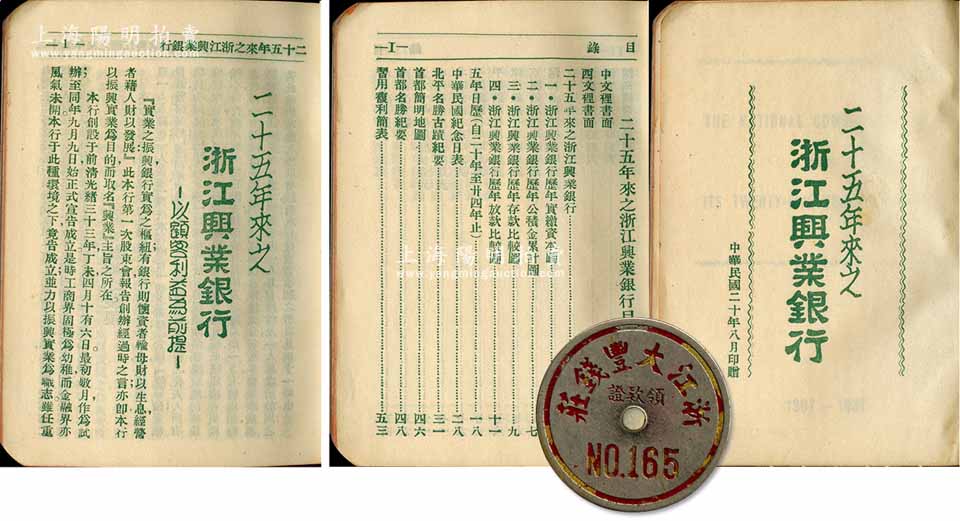 二十五年來之浙江興業銀行 —1—
二十五年來之
浙江興業銀行
—以顧客利益為前提—
『實業之振興銀行實為之樞紐有銀行則懷資者輸母財以生息經營
者藉人財以發展』此本行第一次股東會報告創辦經過時之言亦卽本行
以振興實業為目的而取名『興業』主旨之所在
本行創設于前清光緒三十三年丁未四月十有六日最初數月作為試
辦至同年九月九日始正式宣告成立是時工商界固極為幼稚而金融界亦
風氣未開本行于此種環境之下竟告成立並力以振興實業為職志雖任重
目錄 —I—
二十五年來之浙江興業銀行日
中文裡書面
西文裡書面
二十五年來之浙江興業銀行
一・浙江興業銀行歷年實繳資本圖
二・浙江興業銀行歷年公積金累計圖
三・浙江興業銀行歷年存款比較圖
四・浙江興業銀行歷年放款比較圖
五年日曆(自二十年至廿四年止)
中華民國紀念日表
北平名勝古蹟紀要
首都簡明地圖
首都名勝紀要
習用複利簡表
七
九
十一
一八
二八
三一
四六
四八
五三
二十五年來之
浙江興業銀行
中華民國二十年八月印贈
浙江大豐錢莊
領欵證
NO.165
上海陽明拍賣
www.yangmingauction.com
上海陽明拍賣
www.yangmingauction.com